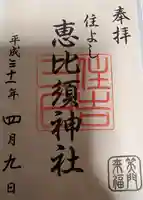 奉拝
住よし
恵比須神社
平成三十一年四月九日
住吉
笑門
来福